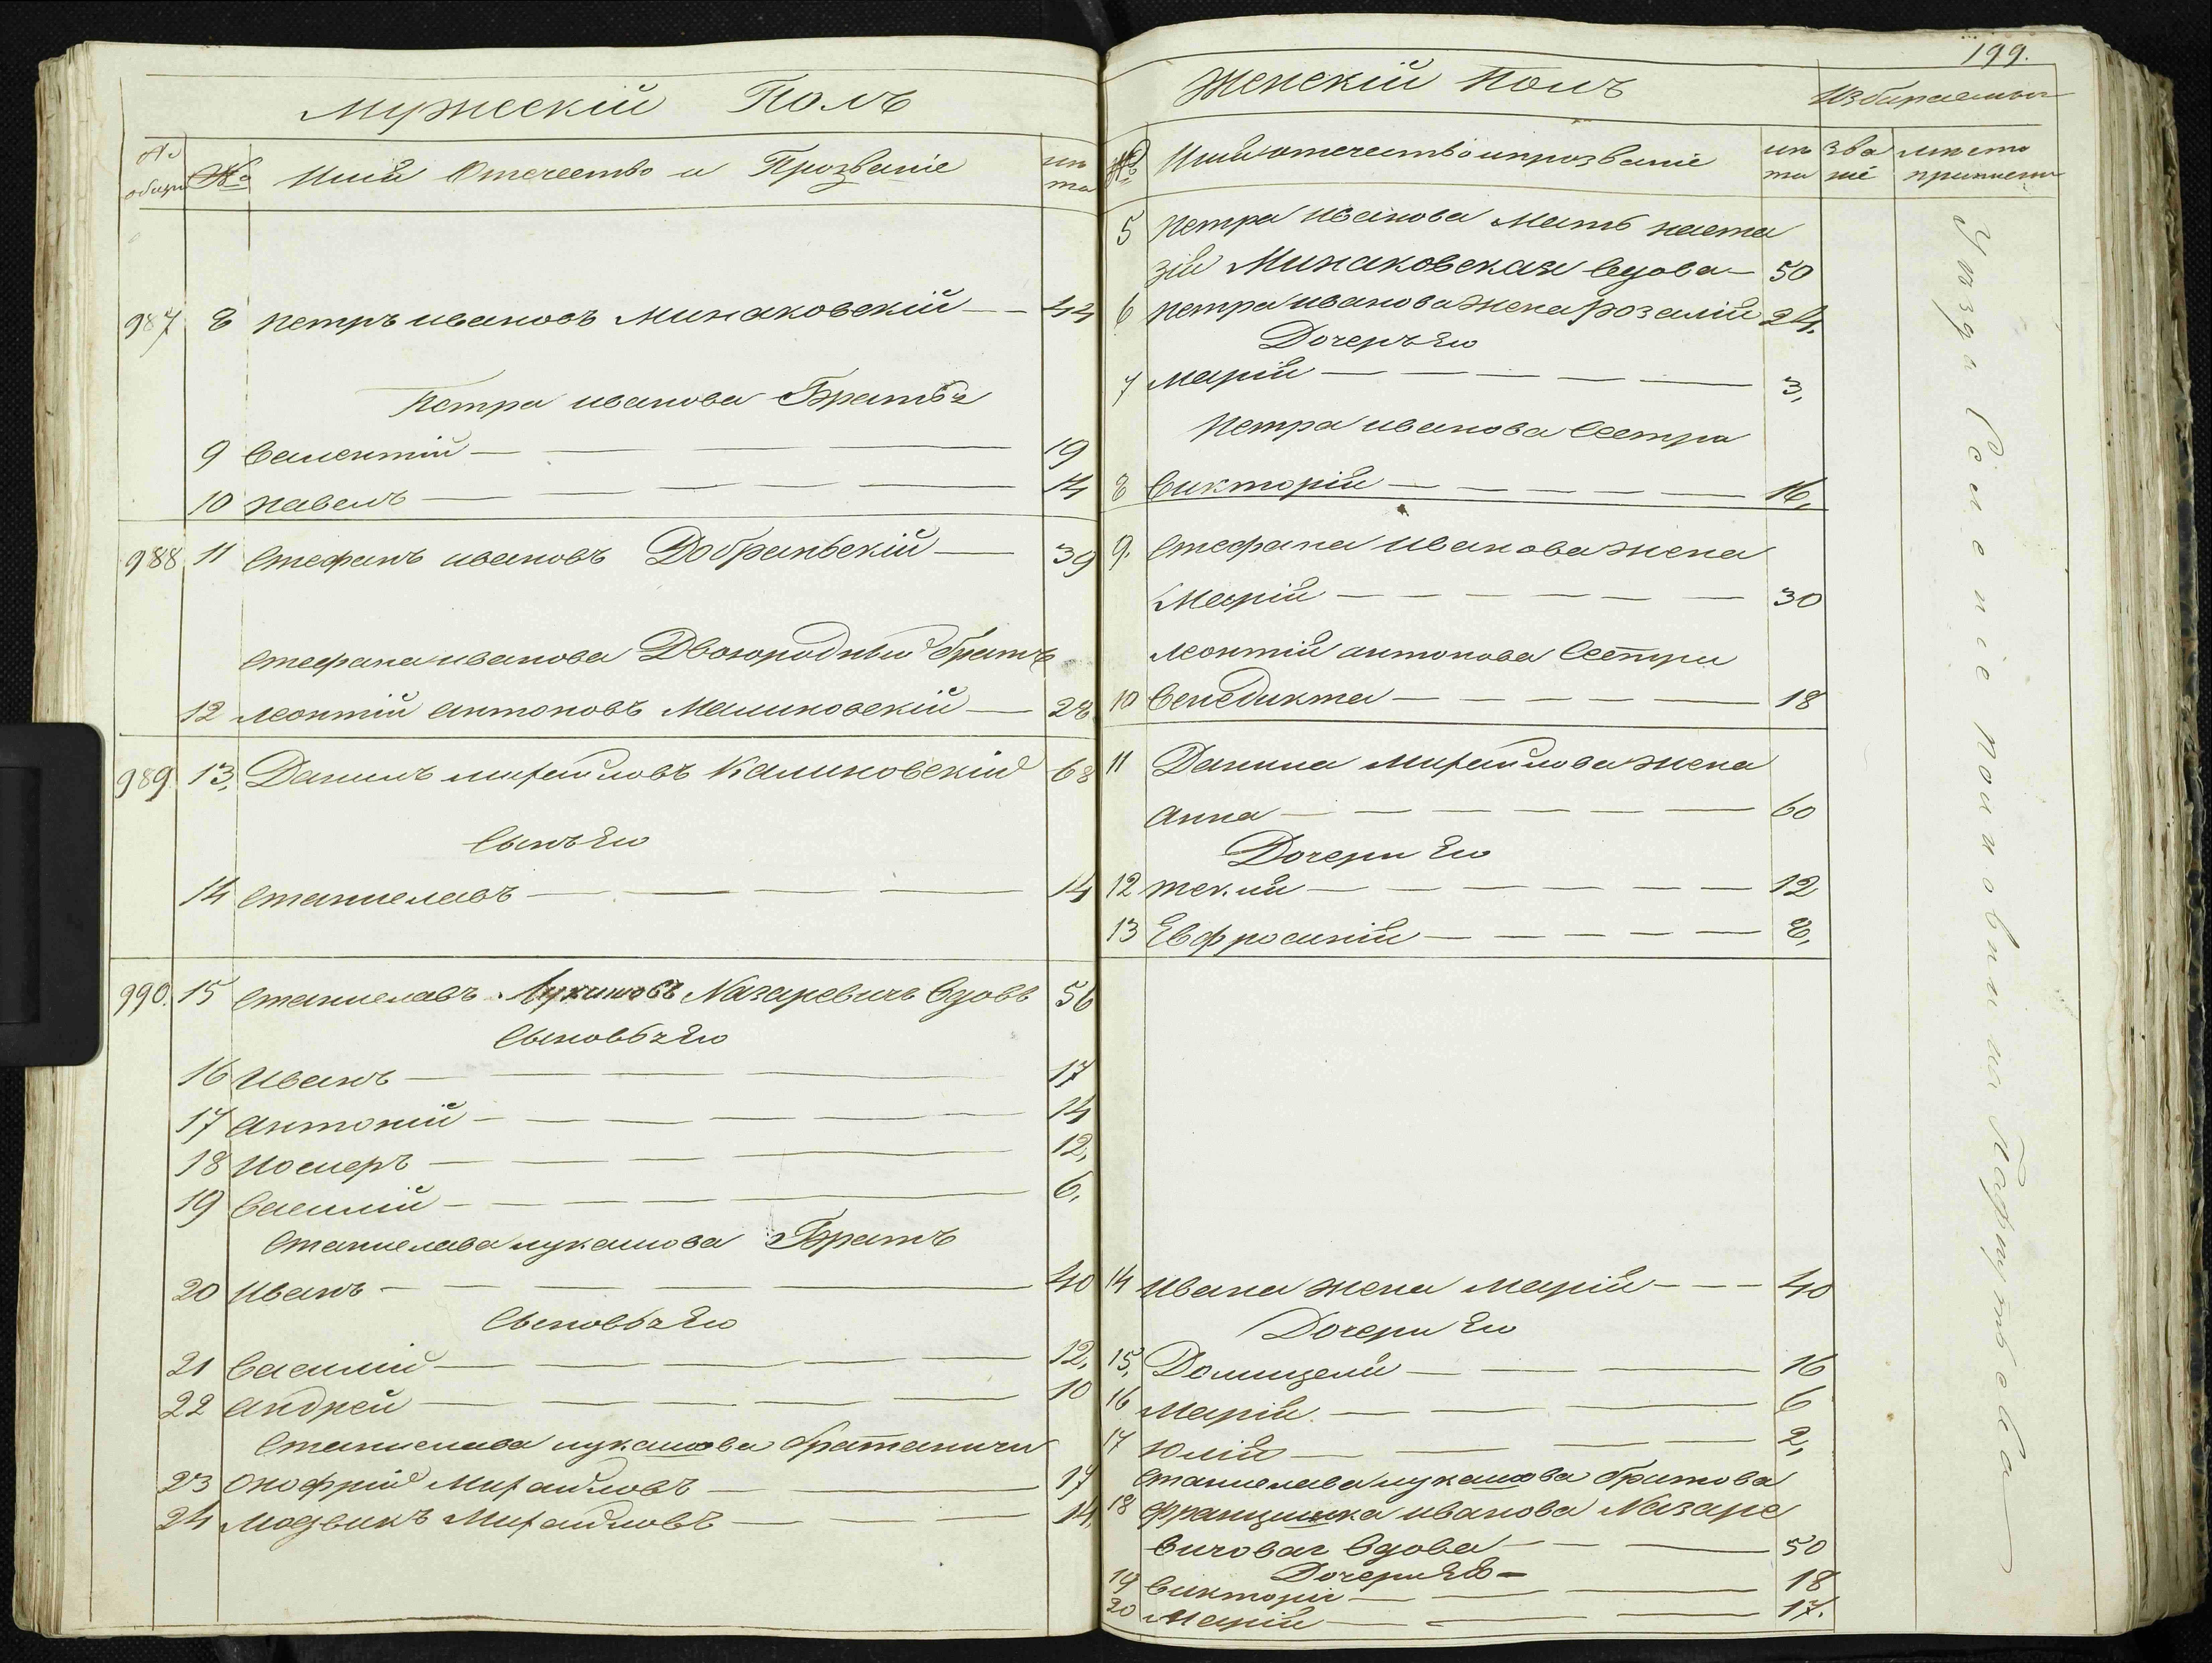 Мужескій Полъ
№ общій
№
Имя Отечество и Прозваніе
лѣта
987 8 Петръ Ивановъ Минаковскій 44
Петра Иванова Братья
9 Валентій 19
10 Павелъ 14
988 11 Стефанъ Ивановъ Добраньскій 39
Стефана Иванова Двоюродный братъ
12 Леонтій Антоновъ Малиновскій 28
989 13, Данилъ Михайловъ Калиновскій 68
Сынъ Его
14 Станиславъ 14
990. 15 Станиславъ Назаревичъ Вдовъ 56
Сыновья Его
16 Иванъ 17
17 Антоній 14
18 Иосиеръ 12,
19 Василій 6,
Станислава Лукашова Братъ
20 Иванъ 40
Сыновья Его
21 Василій 12,
22 Андрей 10
Станислава Лукашова братаничи
23 Онофрій Михайловъ 17
24 Людвикъ Михайловъ 14,
199.
Женскій Полъ
Избираемыя
№
Имя отечество и прозваніе
лѣта
званіе
мѣсто
5 Петра Иванова Мать Наста
зія Минаковская вдова 50
6 Петра Иванова Жена Розалія 24,
Дочерь Его
7 Марія 3,
Петра Иванова Сестра
8 Викторія 16,
9. Стефана Иванова жена
Марія 30
Леонтія Антонова Сестра
10 Бенедикта 18
11 Данила Михайлова жена
Анна 60
Дочери Его
12 Текля 12
13 Евфросинія 8,
14 Ивана Жена Марія 40
Дочери Его
15, Домицеля 16
16 Марія 6
17 Юлія 2,
Станислава Лукашова братова
18 Францишка Иванова Назаре
вичовая Вдова 50
Дочери Её
19 Викторія 18
20 Марія 17.
Уѣзда Селеніе